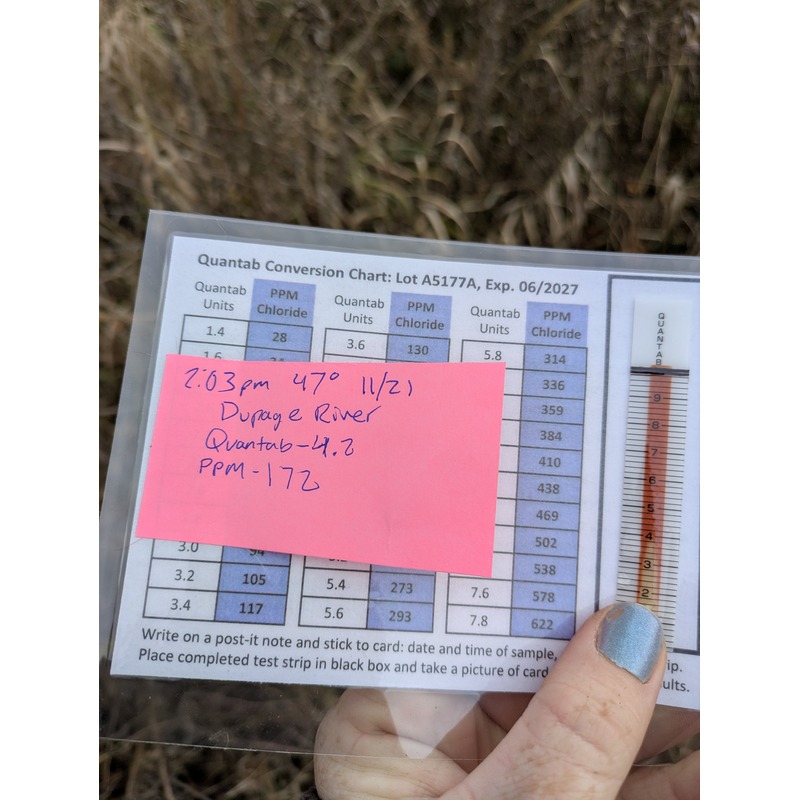 Quantab Conversion Chart: Lot A5177A, Exp. 06/2027
Quantab Units PPM Chloride Quantab Units PPM Chloride Quantab Units PPM Chloride
1.4 28 3.6 130 5.8 314
336
359
384
410
438
469
502
538
3.0 94
3.2 105 5.4 273 7.6 578
3.4 117 5.6 293 7.8 622
2:03pm 47° 11/21
Dupage River
Quantab-4.2
PPM-172
Write on a post-it note and stick to card: date and time of sample,
Place completed test strip in black box and take a picture of card
QUANTAB
9
8
7
6
5
4
3
2